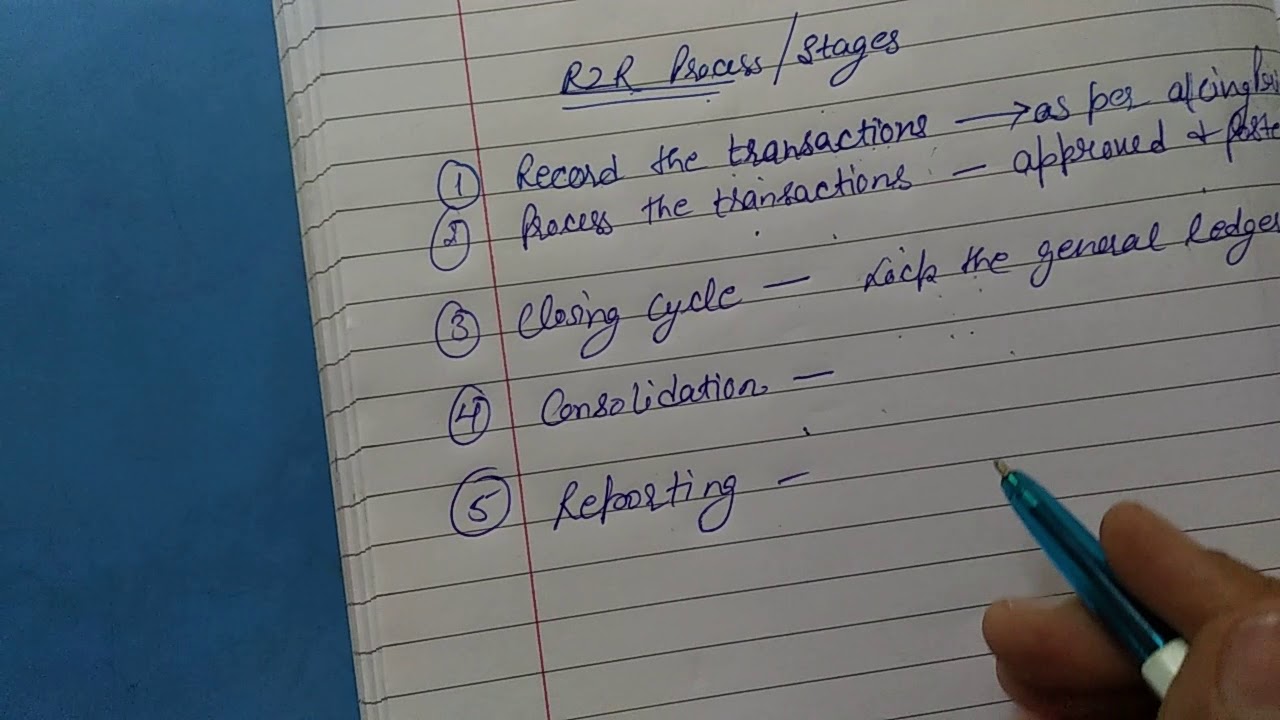 R2R Process/Stages
① Record the transactions → as per a/cing
② Process the transactions - approved +
③ Closing Cycle - Lock the general ledger
④ Consolidation -
⑤ Reporting -